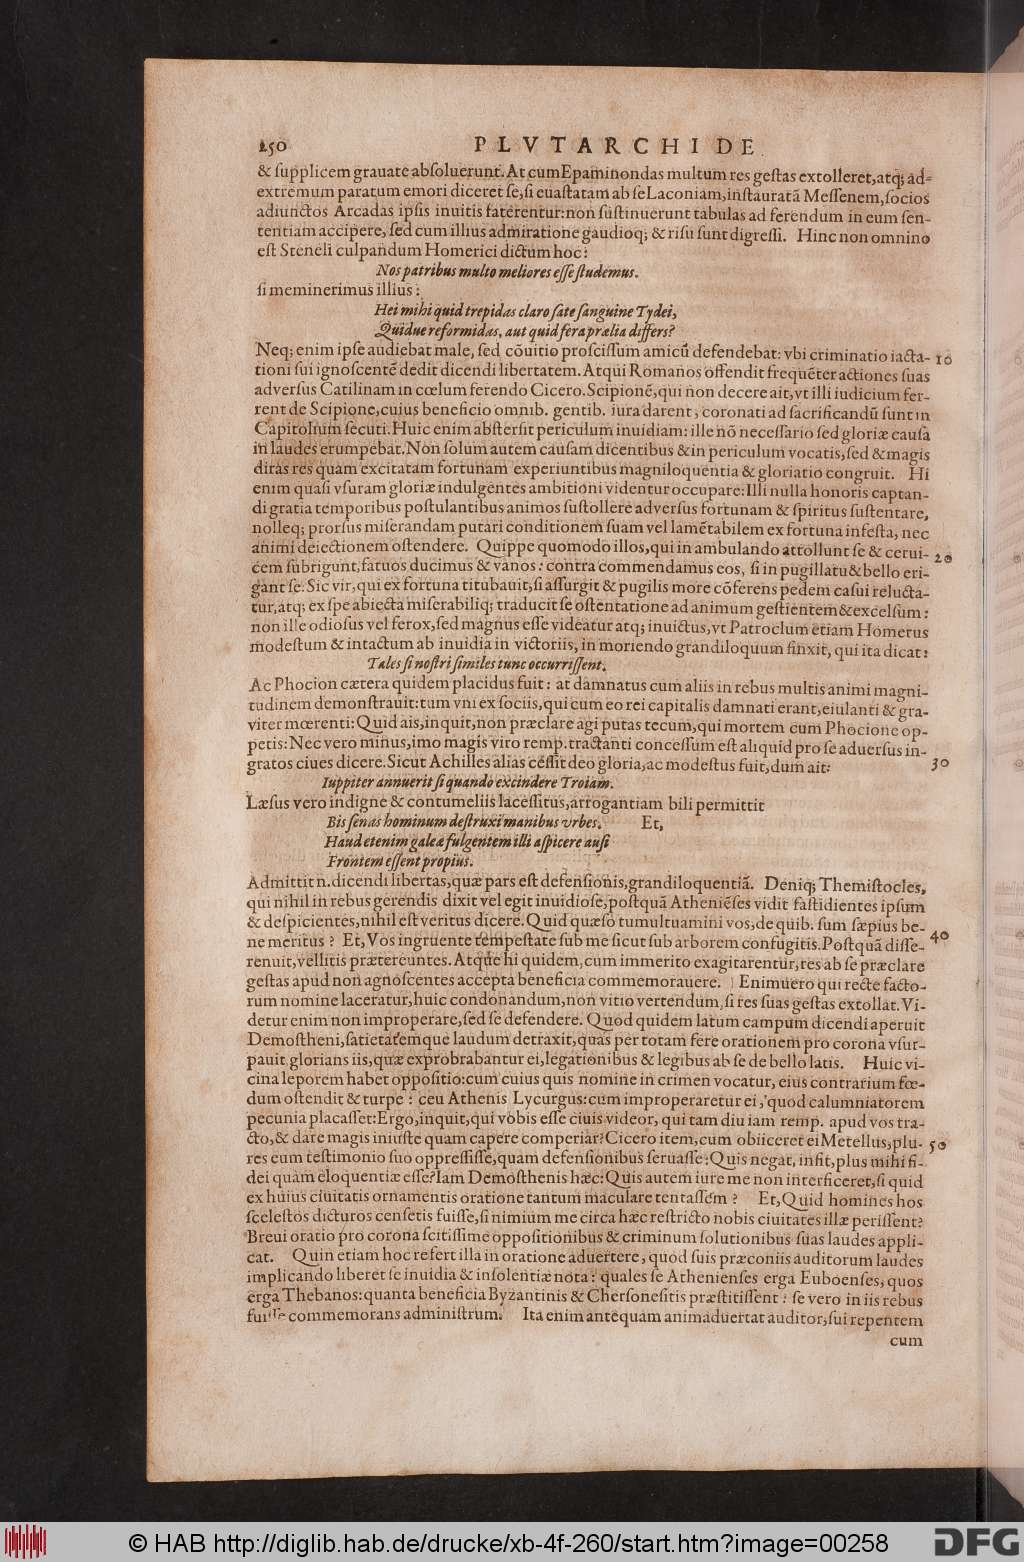 250 PLVTARCHI DE
& ſupplicem grauate abſoluerunt. At cum Epaminondas multum res geſtas extolleret, atq; ad-
extremum paratum emori diceret ſe, ſi euaſtatam ab ſe Laconiam, inſtauratā Meſſenem, ſocios
adiunctos Arcadas ipſis inuitis faterentur: non ſuſtinuerunt tabulas ad ferendum in eum ſen-
tentiam accipere, ſed cum illius admiratione gaudioq; & riſu ſunt digreſſi. Hinc non omnino
eſt Steneli culpandum Homerici dictum hoc:
Nos patribus multo meliores eſſe ſtudemus.
ſi meminerimus illius:
Hei mihi quid trepidas claro ſate ſanguine Tydei,
Quidue reformidas, aut quid fera prælia differs?
Neq; enim ipſe audiebat male, ſed cōuitio proſciſſum amicū defendebat: vbi criminatio iacta- 10
tioni ſui ignoſcentē dedit dicendi libertatem. Atqui Romanos offendit frequēter actiones ſuas
adverſus Catilinam in cœlum ferendo Cicero. Scipionē, qui non decere ait, vt illi iudicium fer-
rent de Scipione, cuius beneficio omnib. gentib. iura darent, coronati ad ſacrificandū ſunt in
Capitolium ſecuti. Huic enim abſterſit periculum inuidiam: ille nō neceſſario ſed gloriæ cauſa
in laudes erumpebat. Non ſolum autem cauſam dicentibus & in periculum vocatis, ſed & magis
diras res quam excitatam fortunam experiuntibus magniloquentia & gloriatio congruit. Hi
enim quaſi vſuram gloriæ indulgentes ambitioni videntur occupare: Illi nulla honoris captan-
di gratia temporibus poſtulantibus animos ſuſtollere adverſus fortunam & ſpiritus ſuſtentare,
nolleq; prorſus miſerandam putari conditionem ſuam vel lamētabilem ex fortuna infeſta, nec
animi deiectionem oſtendere. Quippe quomodo illos, qui in ambulando attollunt ſe & cerui- 20
cem ſubrigunt, fatuos ducimus & vanos: contra commendamus eos, ſi in pugillatu & bello eri-
gant ſe. Sic vir, qui ex fortuna titubauit, ſi aſſurgit & pugilis more cōferens pedem caſui relucta-
tur, atq; ex ſpe abiecta miſerabiliq; traducit ſe oſtentatione ad animum geſtientem & excelſum:
non ille odioſus vel ferox, ſed magnus eſſe videatur atq; inuictus, vt Patroclum etiam Homerus
modeſtum & intactum ab inuidia in victoriis, in moriendo grandiloquum finxit, qui ita dicat:
Tales ſi noſtri ſimiles tunc occurriſſent.
Ac Phocion cætera quidem placidus fuit: at damnatus cum aliis in rebus multis animi magni-
tudinem demonſtrauit: tum vni ex ſociis, qui cum eo rei capitalis damnati erant, eiulanti & gra-
viter mœrenti: Quid ais, inquit, non præclare agi putas tecum, qui mortem cum Phocione op-
petis: Nec vero minus, imo magis viro remp. tractanti conceſſum eſt aliquid pro ſe aduerſus in-
gratos ciues dicere. Sicut Achilles alias ceſſit deo gloria, ac modeſtus fuit, dum ait: 30
Iuppiter annuerit ſi quando excindere Troiam.
Læſus vero indigne & contumeliis laceſſitus, arrogantiam bili permittit
Bis ſenas hominum deſtruxi manibus vrbes. Et,
Haud etenim galeæ fulgentem illi aſpicere auſi
Frontem eſſent propius.
Admittit n. dicendi libertas, quæ pars eſt defenſionis, grandiloquentiā. Deniq; Themiſtocles,
qui nihil in rebus gerendis dixit vel egit inuidioſe, poſtquā Atheniēſes vidit faſtidientes ipſum
& deſpicientes, nihil eſt veritus dicere. Quid quæſo tumultuamini vos, de quib. ſum ſæpius be-
ne meritus? Et, Vos ingruente tempeſtate ſub me ſicut ſub arborem confugitis. Poſtquā diſſe- 40
renuit, vellitis prætereuntes. Atque hi quidem, cum immerito exagitarentur, res ab ſe præclare
geſtas apud non agnoſcentes accepta beneficia commemorauere. Enimuero qui recte facto-
rum nomine laceratur, huic condonandum, non vitio vertendum, ſi res ſuas geſtas extollat. Vi-
detur enim non improperare, ſed ſe defendere. Quod quidem latum campum dicendi aperuit
Demoſtheni, ſatietatemque laudum detraxit, quas per totam fere orationem pro corona vſur-
pauit glorians iis, quæ exprobrabantur ei, legationibus & legibus ab ſe de bello latis. Huic vi-
cina leporem habet oppoſitio: cum cuius quis nomine in crimen vocatur, eius contrarium fœ-
dum oſtendit & turpe: ceu Athenis Lycurgus: cum improperaretur ei, quod calumniatorem
pecunia placaſſet: Ergo, inquit, qui vobis eſſe ciuis videor, qui tam diu iam remp. apud vos tra-
cto, & dare magis iniuſte quam capere comperiar? Cicero item, cum obiiceret ei Metellus, plu- 50
res eum teſtimonio ſuo oppreſſiſſe, quam defenſionibus ſeruaſſe: Quis negat, infit, plus mihi fi-
dei quam eloquentiæ eſſe? Iam Demoſthenis hæc: Quis autem iure me non interficeret, ſi quid
ex huius ciuitatis ornamentis oratione tantum maculare tentaſſem? Et, Quid homines hos
ſceleſtos dicturos cenſetis fuiſſe, ſi nimium me circa hæc reſtricto nobis ciuitates illæ periſſent?
Breui oratio pro corona ſcitiſſime oppoſitionibus & criminum ſolutionibus ſuas laudes appli-
cat. Quin etiam hoc refert illa in oratione aduertere, quod ſuis præconiis auditorum laudes
implicando liberet ſe inuidia & inſolentiæ nota: quales ſe Athenienſes erga Euboenſes, quos
erga Thebanos: quanta beneficia Byzantinis & Cherſoneſitis præſtitiſſent: ſe vero in iis rebus
fuiſſe commemorans adminiſtrum. Ita enim antequam animaduertat auditor, ſui repentem
cum
© HAB http://diglib.hab.de/drucke/xb-4f-260/start.htm?image=00258
DFG